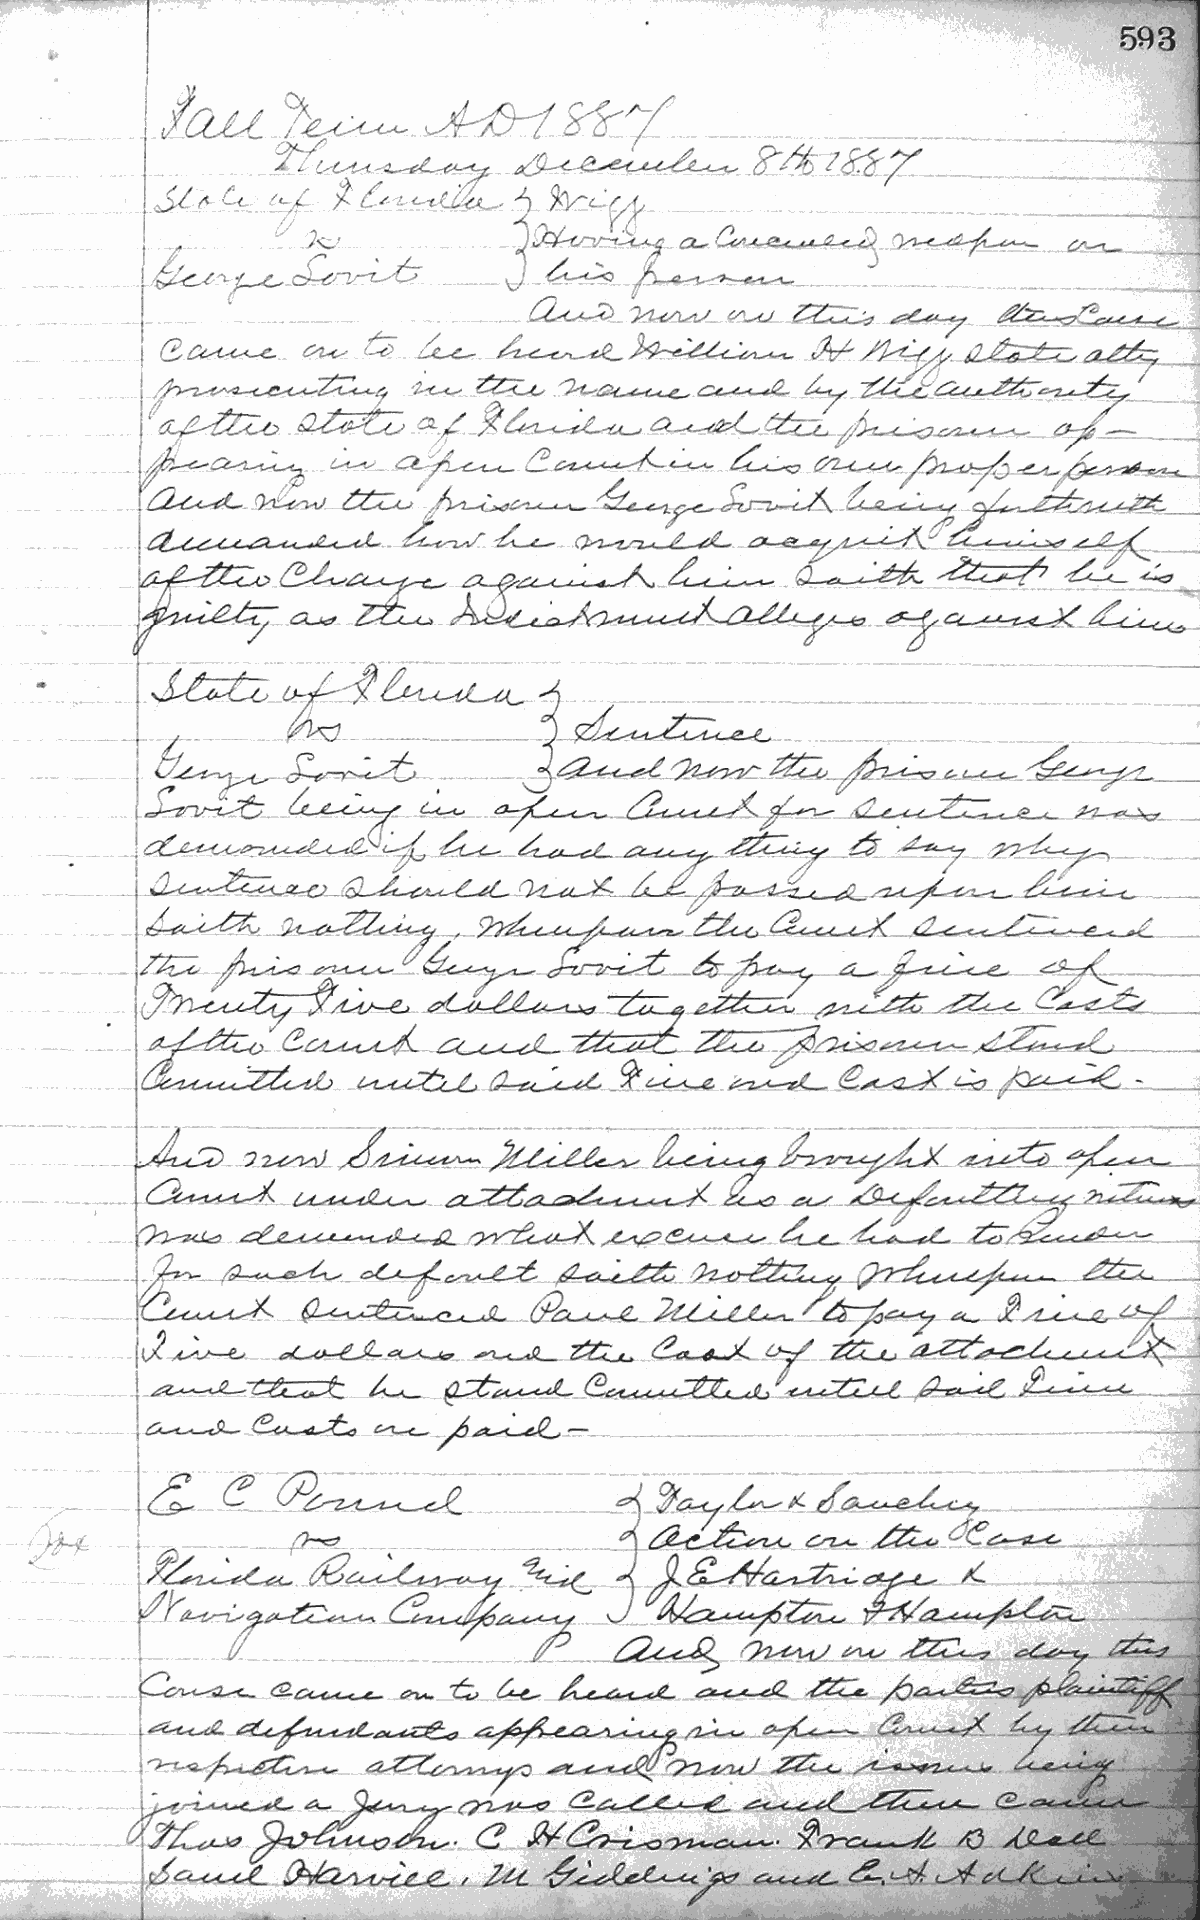 593
Fall Term AD 1887
Thursday December 8th 1887
State of Florida } Wigg
vs } Having a Concealed weapon on
George Lovit } his person
And now on this day this Cause
came on to be heard William H Wigg State atty
prosecuting in the name and by the authority
of the State of Florida and the prisoner ap-
pearing in open Court in his own proper person
And now the prisoner George Lovit being forthwith
demanded how he would acquit himself
of the Charge against him Saith that he is
guilty as the Indictment alleges against him
State of Florida }
vs } Sentence
George Lovit } And now the prisoner George
Lovit being in open Court for sentence was
demanded if he had any thing to say why
Sentence should not be passed upon him
Saith nothing, Whereupon the Court sentenced
the prisoner George Lovit to pay a fine of
Twenty Five dollars together with the Costs
of the Court and that the prisoner stand
Committed until said Fine and Cost is paid -
And now Simon Miller being brought into open
Court under attachment as a Defaulting witness
was demanded what excuse he had to Render
for such default saith nothing Whereupon the
Court sentenced Paul Miller to pay a Fine of
Five dollars and the Cost of the attachment
and that he stand Committed until said Fine
and Costs are paid -
E C Pound } Taylor & Sanchey
vs } Action on the Case
Florida Railway And } J E Hartridge &
Navigation Company } Hampton & Hampton
And now on this day this
Cause came on to be heard and the parties plaintiff
and defendants appearing in open Court by their
respective attorneys and now the issues being
joined a Jury was Called and then came
Thos Johnson. C H Crisman. Frank B Dell
Saml Harvill, M Giddings and E. A. Adkins